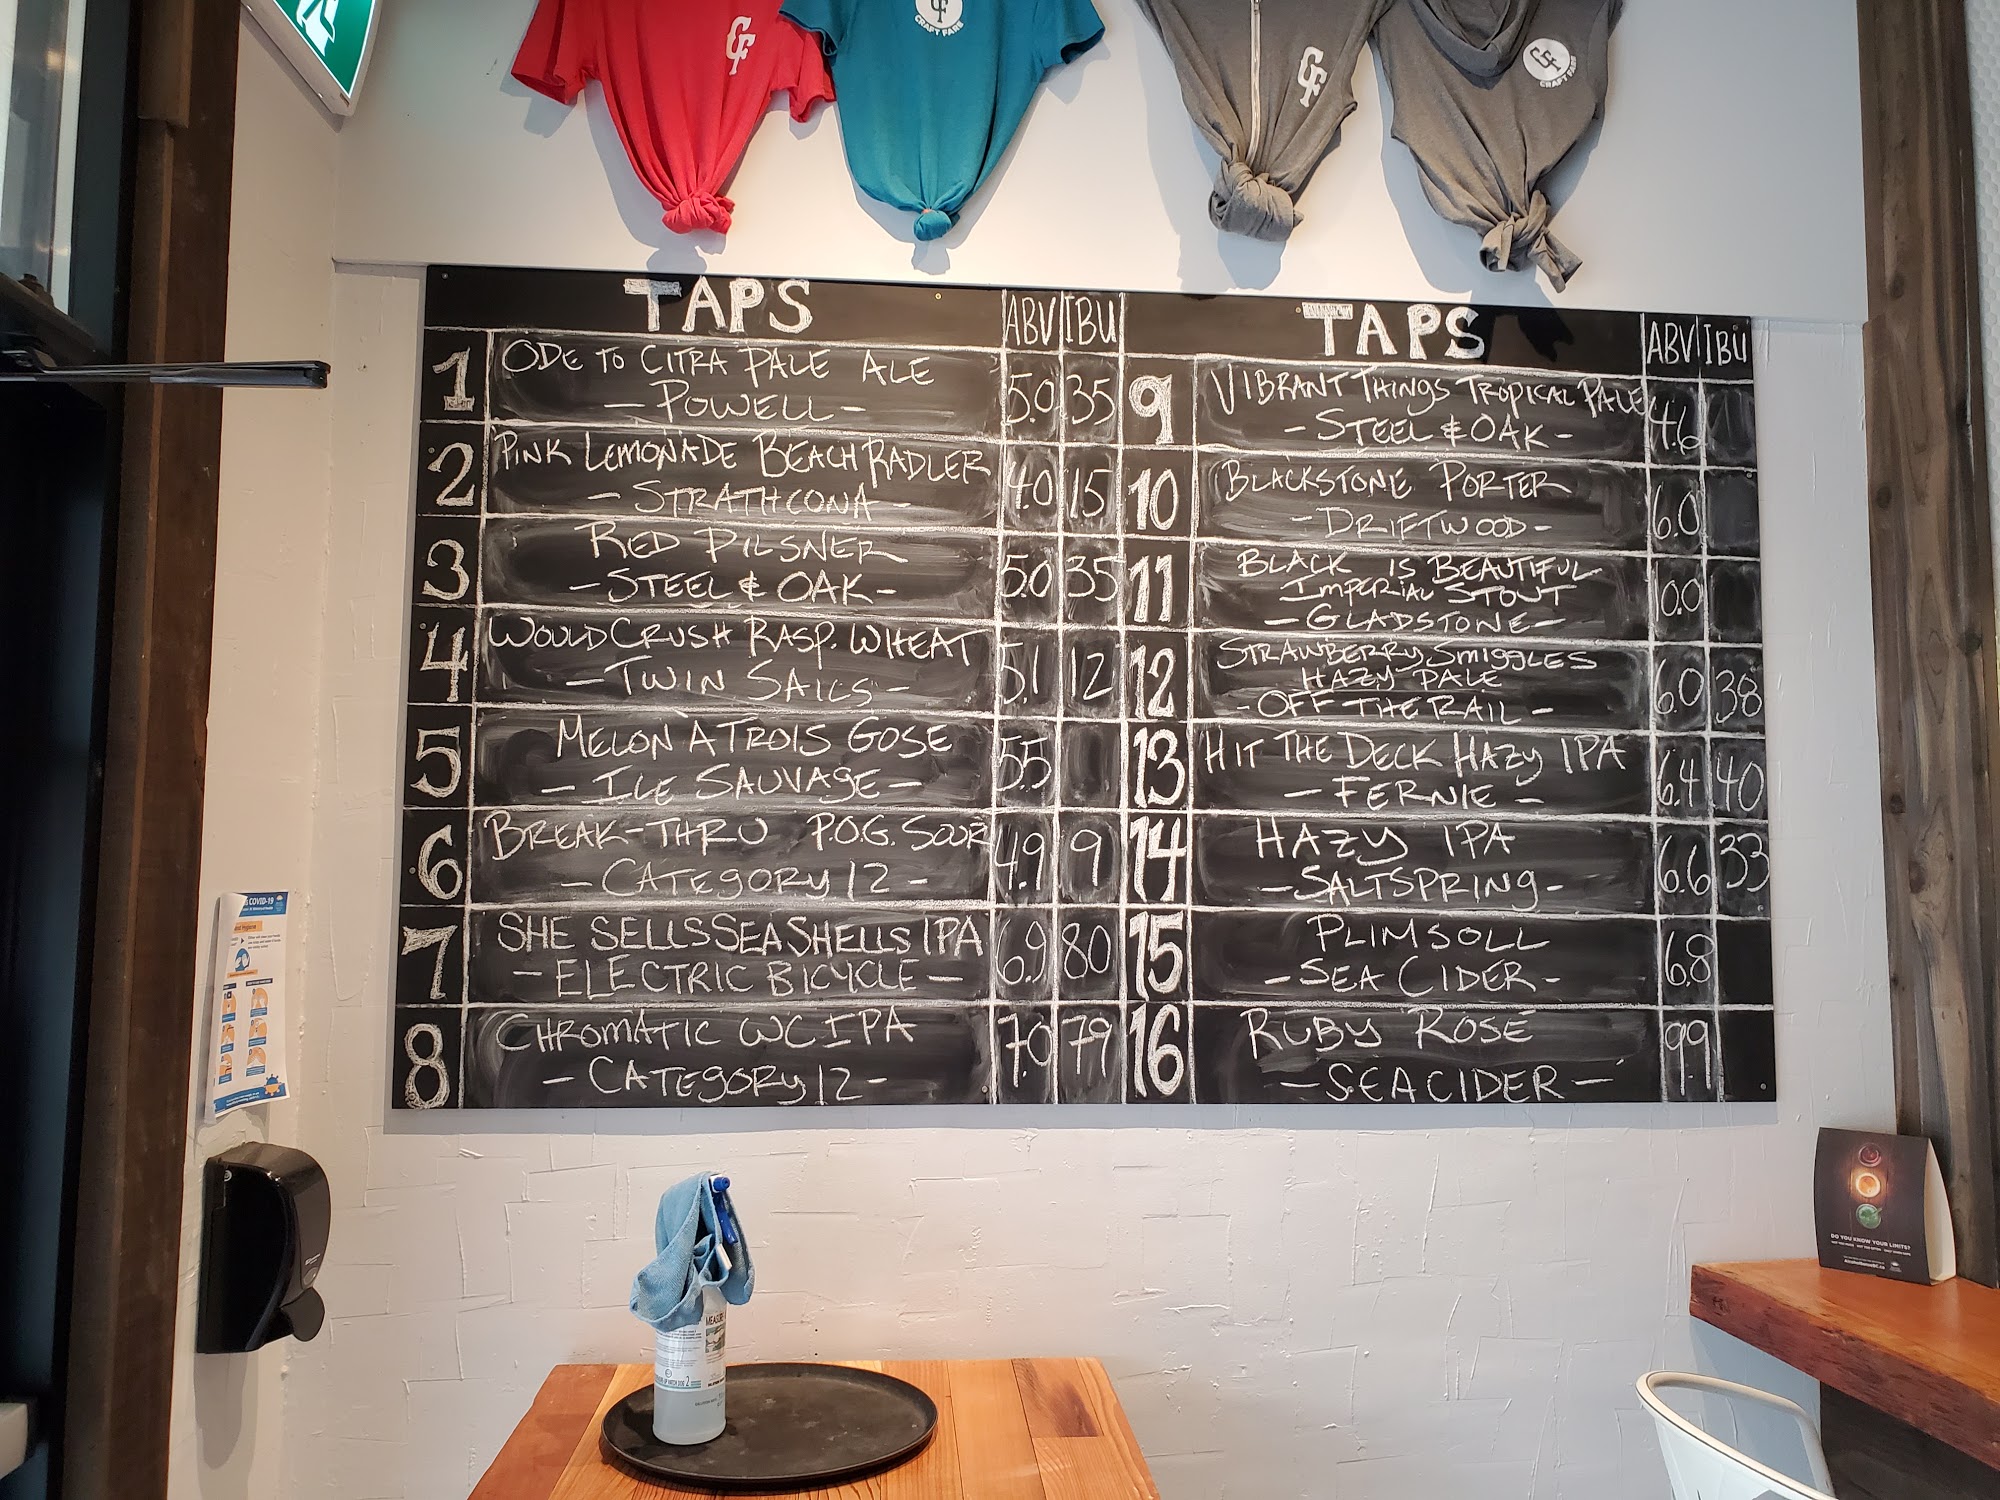 CF
CF
CRAFT FARE
CF
CF
CRAFT FARE
TAPS ABV IBU
1 ODE TO CITRA PALE ALE 5.0 35
- POWELL -
2 PINK LEMONADE BEACH RADLER 4.0 15
- STRATHCONA -
3 RED PILSNER 5.0 35
- STEEL & OAK -
4 WOULD CRUSH RASP. WHEAT 5.1 12
- TWIN SAILS -
5 MELON A TROIS GOSE 5.5
- ILE SAUVAGE -
6 BREAK-THRU P.O.G. SOUR 4.9 9
- CATEGORY 12 -
7 SHE SELLS SEA SHELLS IPA 6.9 80
- ELECTRIC BICYCLE -
8 CHROMATIC WC IPA 7.0 79
- CATEGORY 12 -
TAPS ABV IBU
9 VIBRANT THINGS TROPICAL PALE 4.6
- STEEL & OAK -
10 BLACKSTONE PORTER 6.0
- DRIFTWOOD -
11 BLACK IS BEAUTIFUL 10.0
IMPERIAL STOUT
- GLADSTONE -
12 STRAWBERRY SMIGGLES 6.0 38
HAZY PALE
- OFF THE RAIL -
13 HIT THE DECK HAZY IPA 6.4 40
- FERNIE -
14 HAZY IPA 6.6 33
- SALTSPRING -
15 PLIMSOLL 6.8
- SEA CIDER -
16 RUBY ROSE 9.9
- SEA CIDER -
COVID-19
DO YOU KNOW YOUR LIMITS?
MEASURE